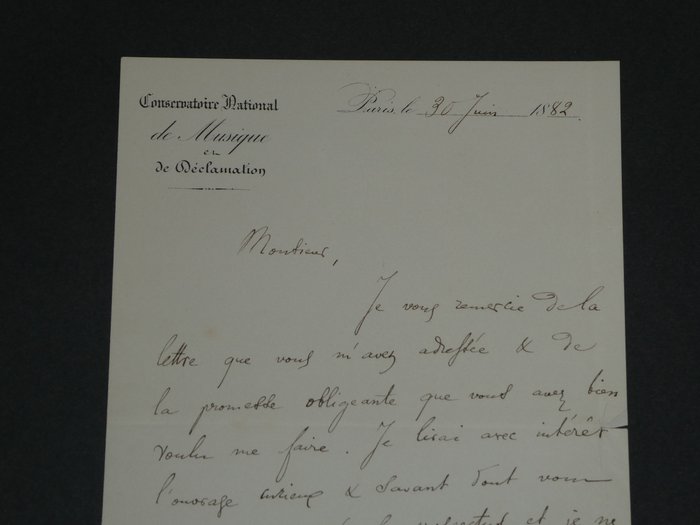 Conservatoire National
de Musique
et
de Déclamation
Paris, le 30 Juin 1882.
Monsieur,
Je vous remercie de la
lettre que vous m'avez adressée & de
la promesse obligeante que vous avez bien
voulu me faire. Je lirai avec intérêt
l'ouvrage curieux & savant dont vous
et je ne